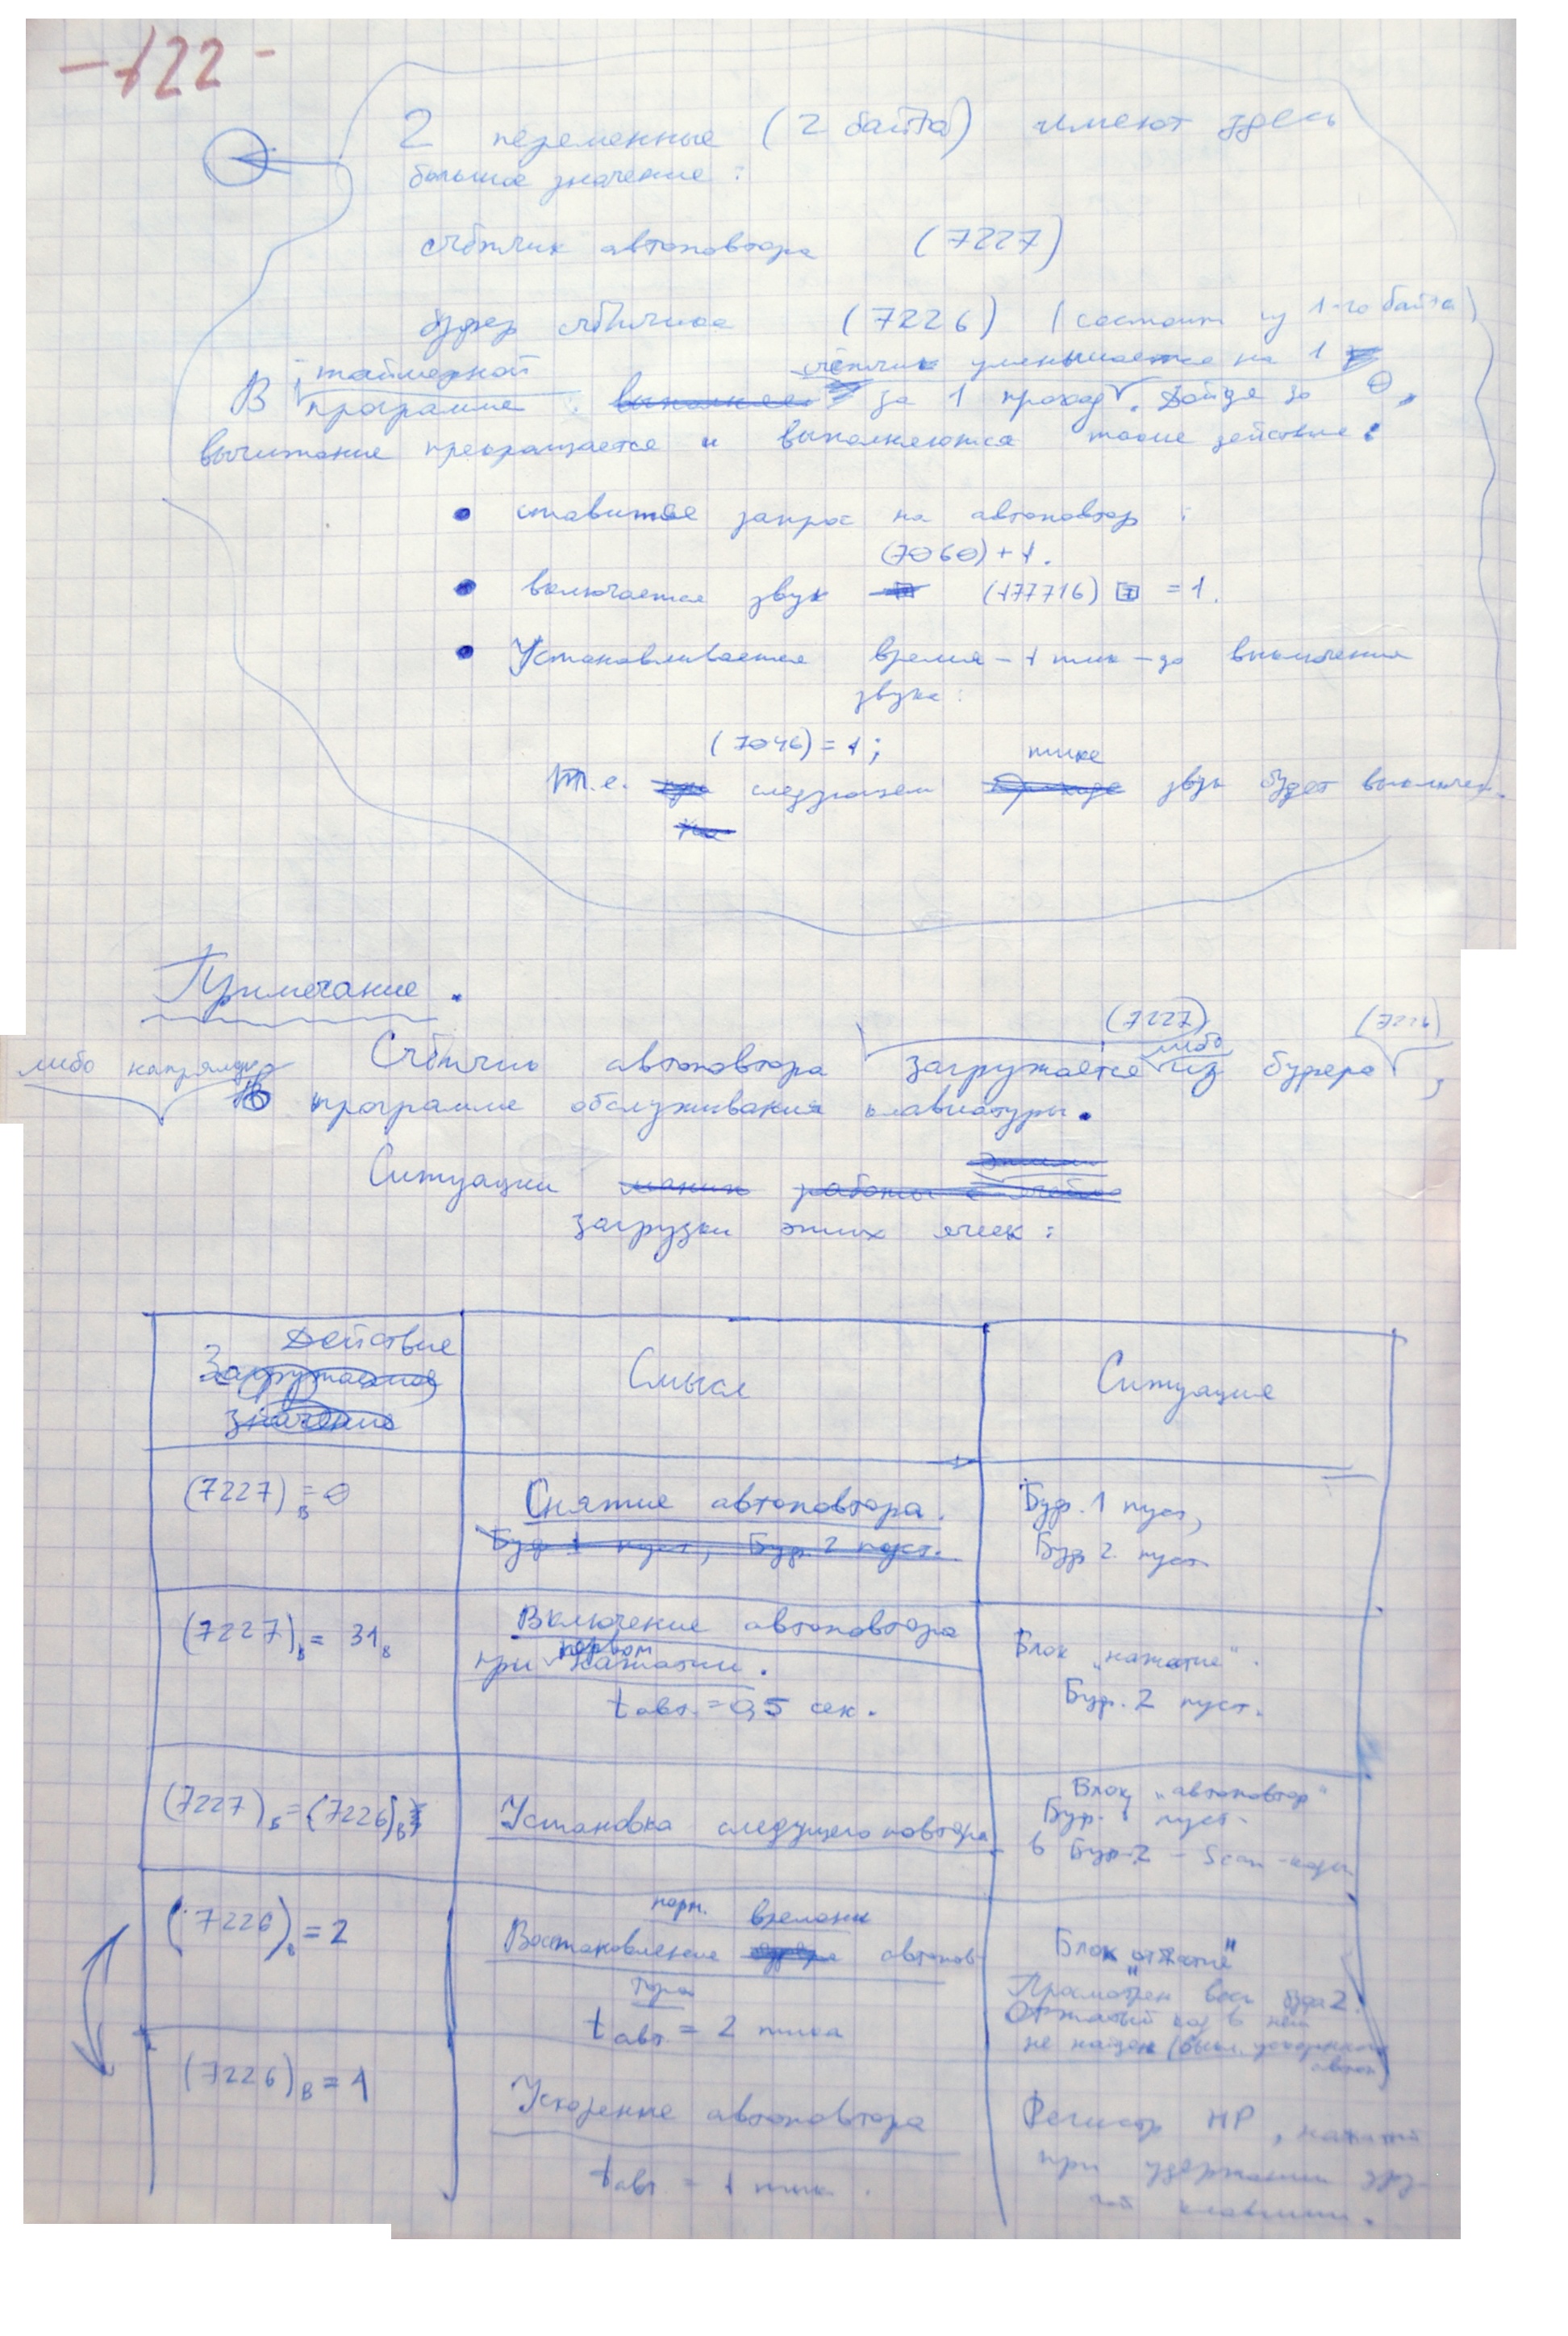 -122-
2 переменные (2 байта) имеют здесь
большое значение:
счётчик автоповтора (7227)
буфер счётчика (7226) (состоит из 1-го байта)
В таймерной программе счётчик уменьшается на 1 за 1 проход. Дойдя до 0,
вычитание прекращается и выполняются такие действия:
• ставится запрос на автоповтор:
(7060)+1.
• включается звук (177716) 7 =1.
• Устанавливается время - 1 тик - до выключения
звука:
(7046)=1;
Т.е. следующем тике звук будет выключен.
Примечание.
Счётчик автоповтора (7227) загружается либо из буфера (7226),
либо напрямую в программе обслуживания клавиатуры.
Ситуации
загрузки этих ячеек:
Действие
Смысл
Ситуация
(7227)в=0
Снятие автоповтора.
Буф. 1 пуст, Буф. 2 пуст.
Буф. 1 пуст,
Буф 2. пуст
(7227)в= 31в
Включение автоповтора
при первом нажатии.
tавт.=0,5 сек.
Блок "нажатие".
Буф. 2 пуст.
(7227)в=(7226)в
Установка следущего повтора
Блок "автоповтор"
Буф. 1 пуст.
в Буф.2 - Scan-коды
(7226)в=2
Востановление норм. времени автопов-
тора
tавт.= 2 тика
Блок "отжатие"
Просмотрен весь буф 2.
Отжатый код в нём
не найден (выкл. ускоренного
автоп)
(7226)в=1
Ускорение автоповтора
tавт = 1 тик.
Регистр НР, нажатый
при удержании дру-
гой клавиши.